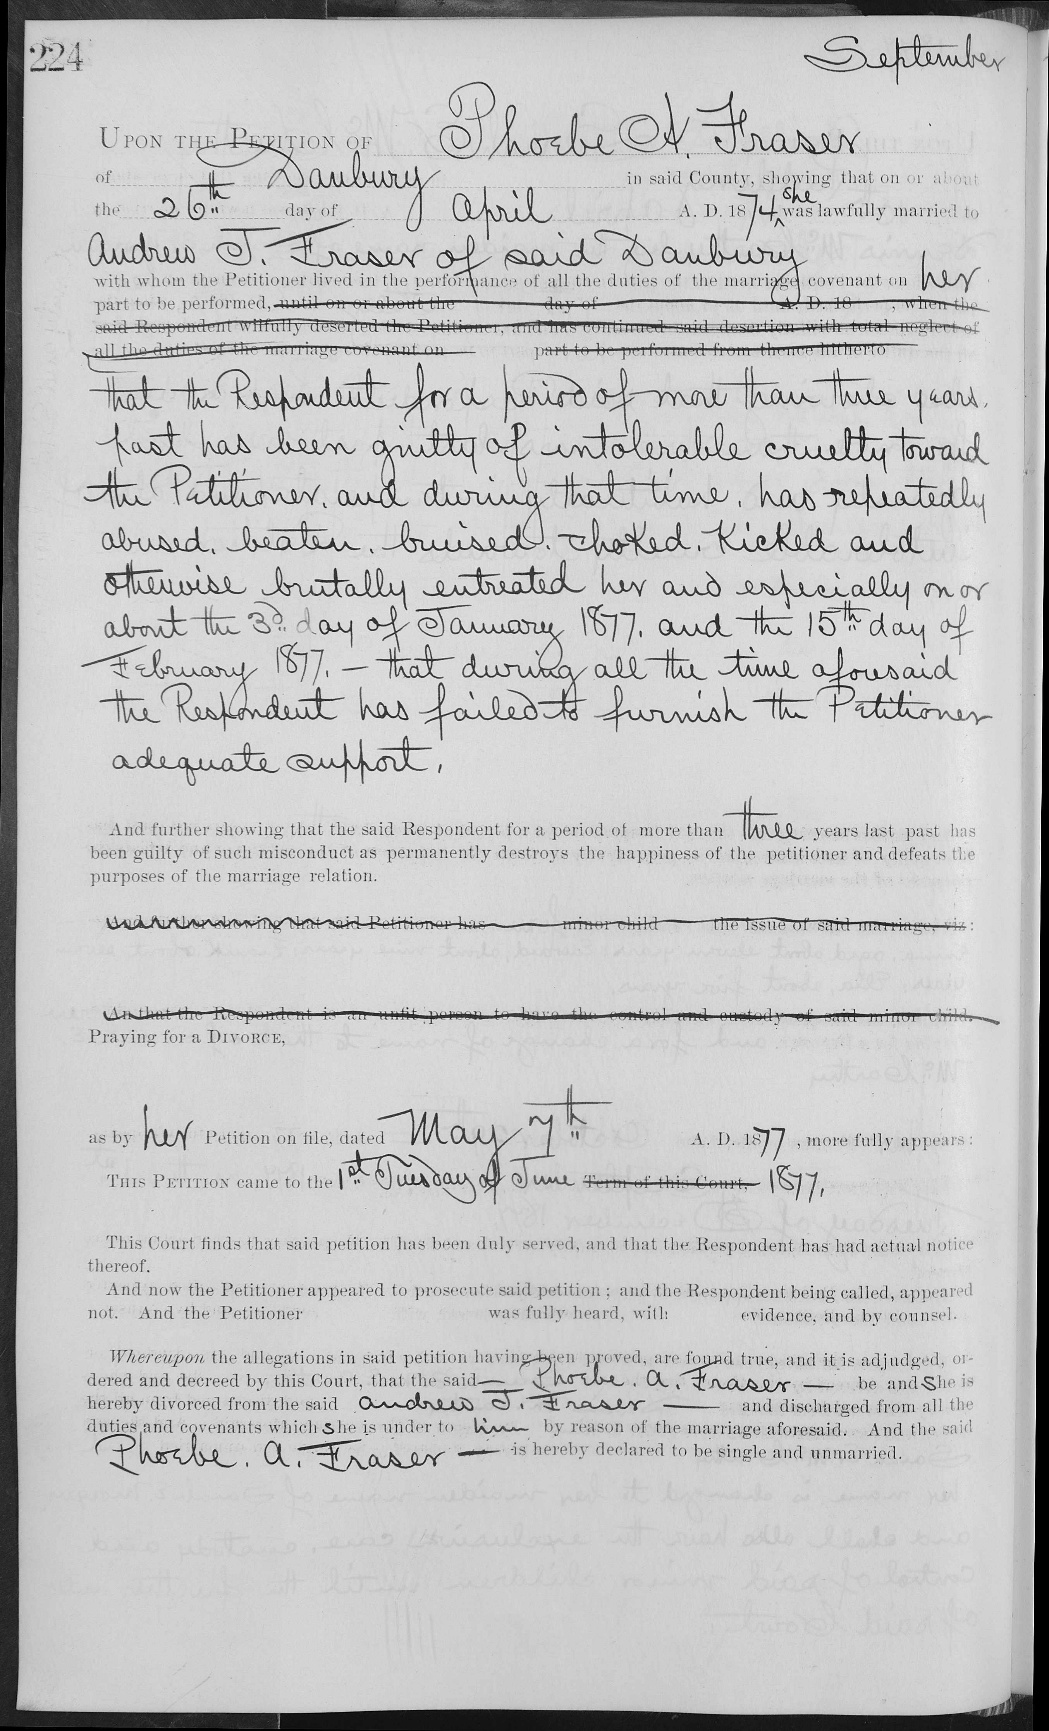 224
September
UPON THE PETITION OF Phoebe A. Fraser
of Danbury in said County, showing that on or about
the 26th day of April A. D. 1874 she was lawfully married to
Andrew J. Fraser of said Danbury
with whom the Petitioner lived in the performance of all the duties of the marriage covenant on her
part to be performed, until on or about the day of A. D. 18 , when the
said Respondent wilfully deserted the Petitioner, and has continued said desertion with total neglect of
all the duties of the marriage covenant on part to be performed from thence hitherto
that the Respondent for a period of more than three years,
past has been guilty of intolerable cruelty toward
the Petitioner, and during that time, has repeatedly
abused, beaten, bruised, choked, Kicked and
otherwise brutally entreated her and especially on or
about the 3d day of January 1877, and the 15th day of
February 1877, – that during all the time aforesaid
the Respondent has failed to furnish the Petitioner
adequate support,
And further showing that the said Respondent for a period of more than three years last past has
been guilty of such misconduct as permanently destroys the happiness of the petitioner and defeats the
purposes of the marriage relation.
And further showing that said Petitioner has minor child the issue of said marriage, viz:
An that the Respondent is an unfit person to have the control and custody of said minor child.
Praying for a DIVORCE,
as by her Petition on file, dated May 7th A. D. 1877 , more fully appears:
THIS PETITION came to the 1st Tuesday of June Term of this Court, 1877,
This Court finds that said petition has been duly served, and that the Respondent has had actual notice
thereof.
And now the Petitioner appeared to prosecute said petition; and the Respondent being called, appeared
not. And the Petitioner was fully heard, with evidence, and by counsel.
Whereupon the allegations in said petition having been proved, are found true, and it is adjudged, or-
dered and decreed by this Court, that the said – Phoebe. A. Fraser – be and She is
hereby divorced from the said Andrew J. Fraser — and discharged from all the
duties and covenants which She is under to him by reason of the marriage aforesaid. And the said
Phoebe. A. Fraser — is hereby declared to be single and unmarried.